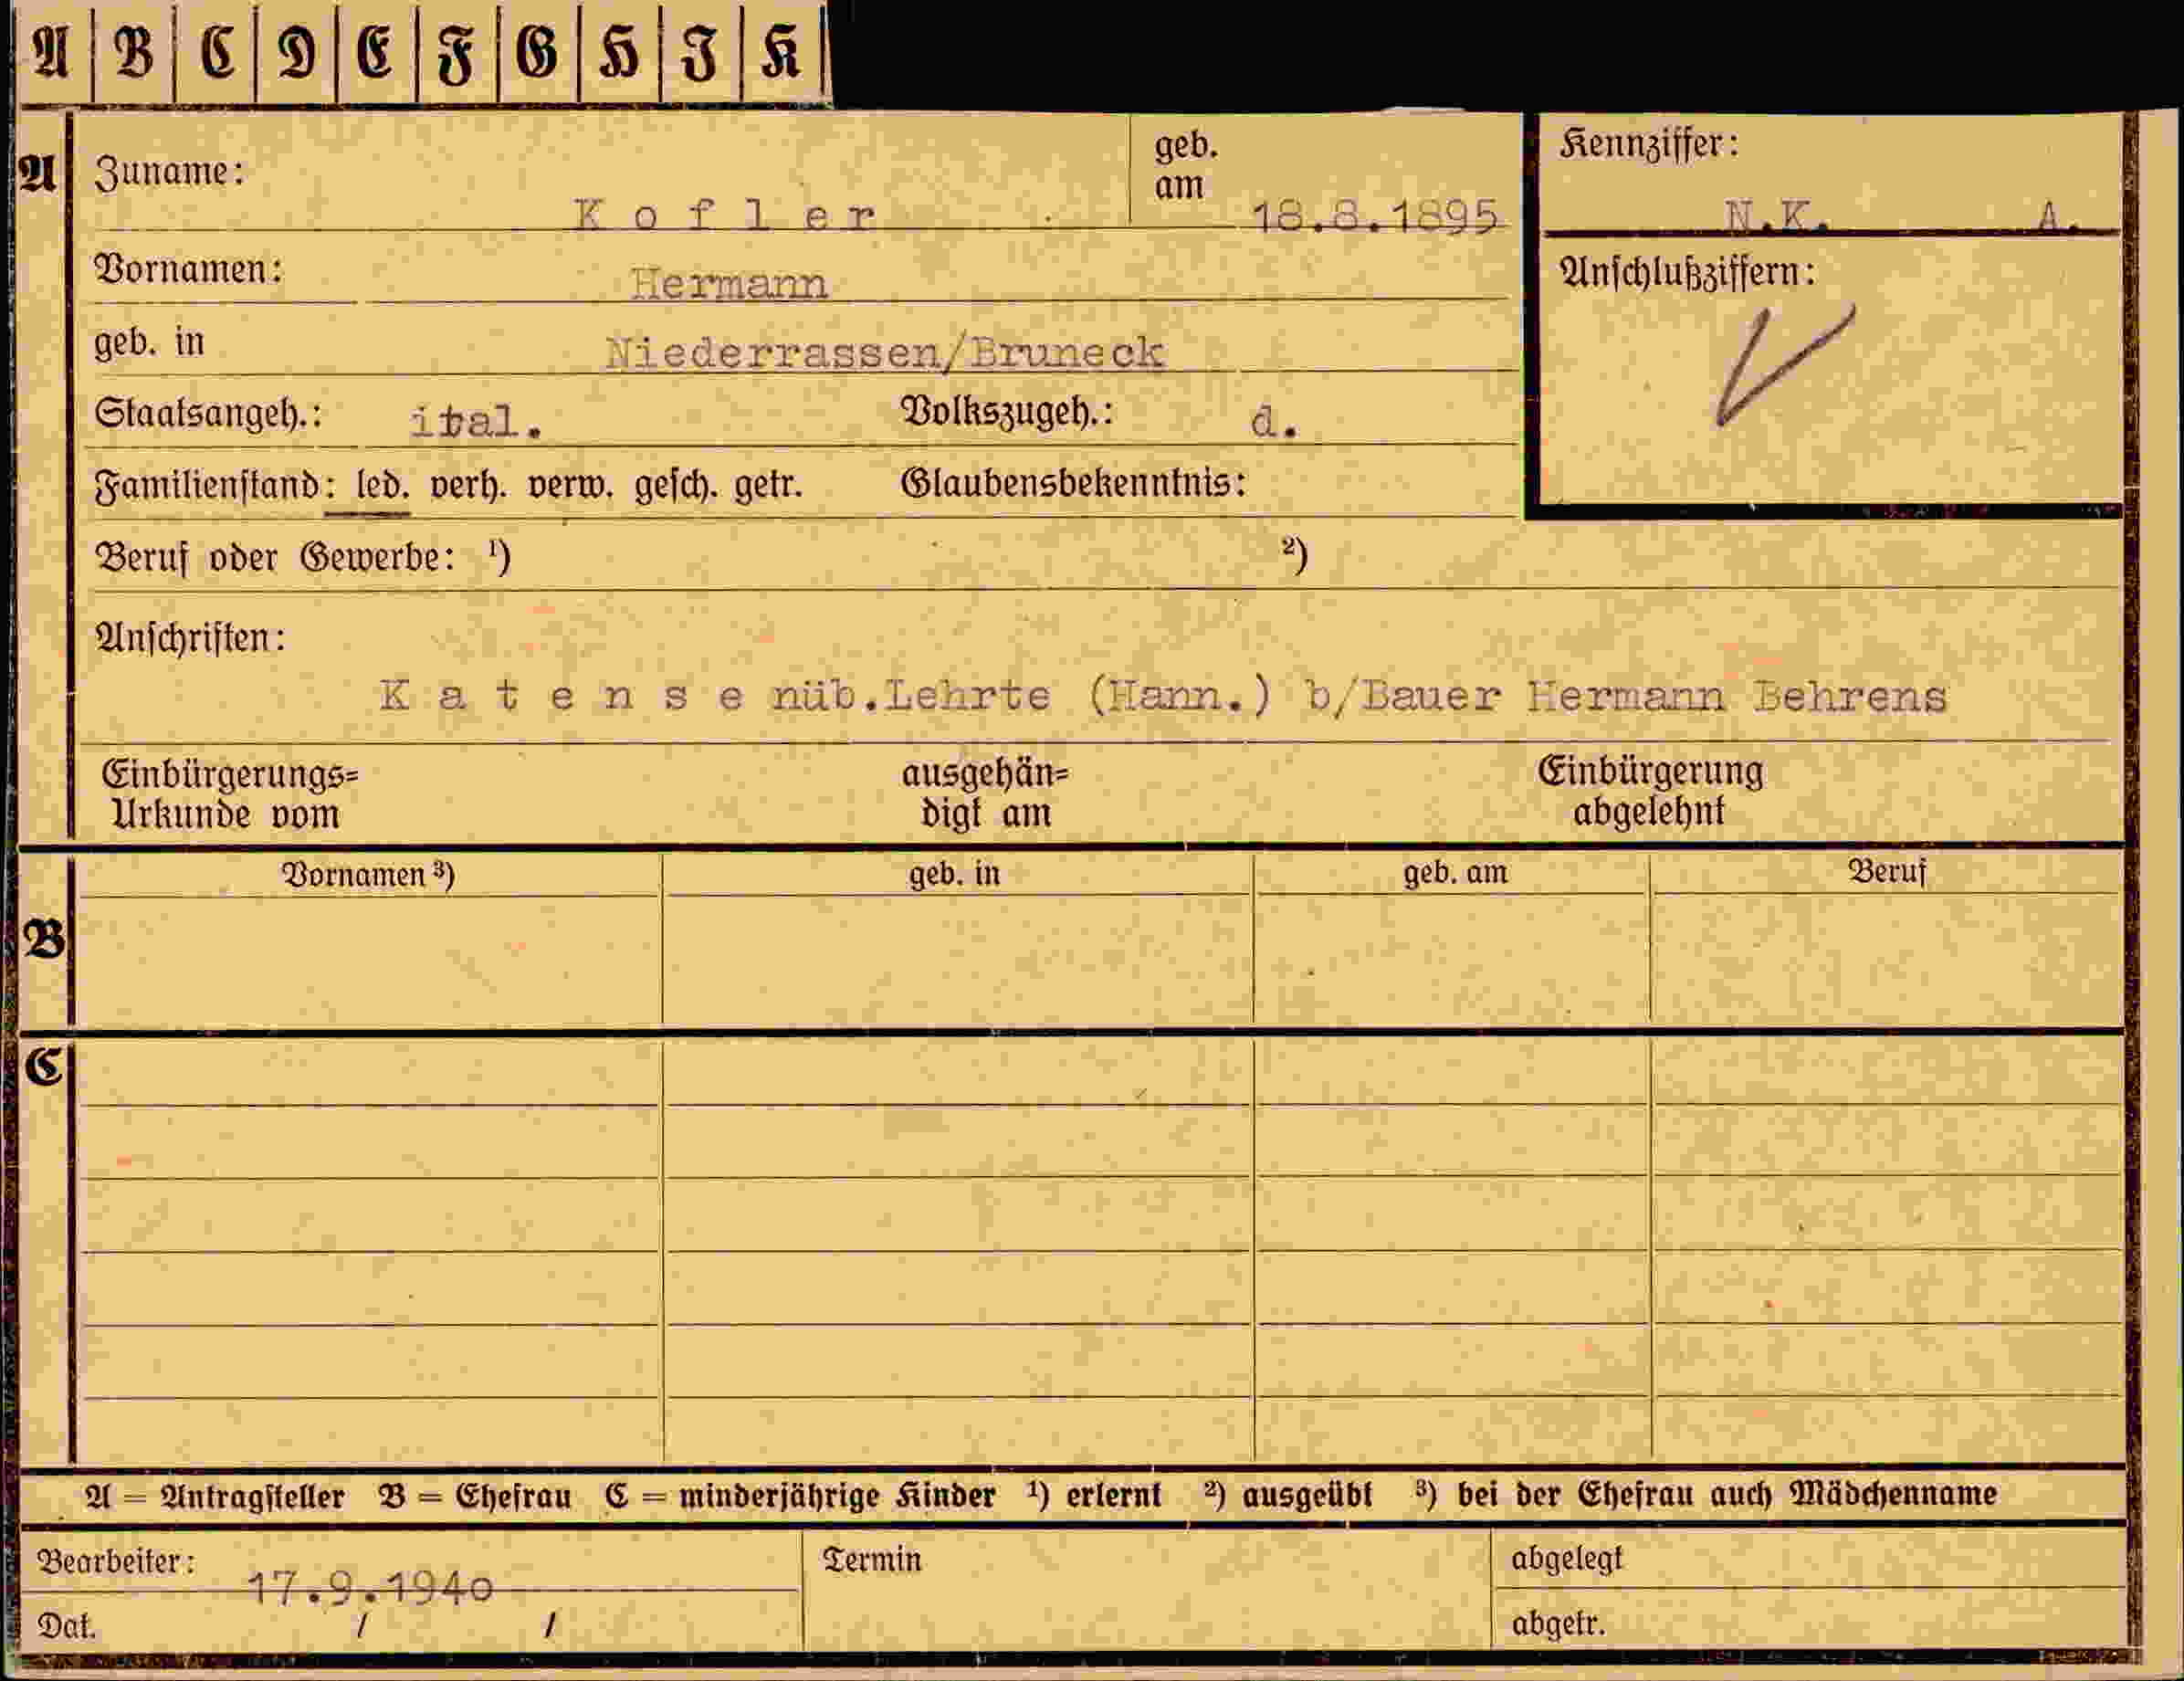 A B C D E F G H I K
A Zuname: geb. am
Kofler 18.8.1895
Kennziffer:
N.K. A.
Vornamen: Hermann
Anschlußziffern:
geb. in Niederrassen/Bruneck
Staatsangeh.: ital. Volkszugeh.: d.
Familienstand: led. verh. verw. gesch. getr. Glaubensbekenntnis:
Beruf oder Gewerbe: ¹) ²)
Anschriften:
Katense nüb.Lehrte (Hann.) b/Bauer Hermann Behrens
Einbürgerungs= ausgehän= Einbürgerung
Urkunde vom digt am abgelehnt
Vornamen ³) geb. in geb. am Beruf
B
C
A = Antragsteller B = Ehefrau C = minderjährige Kinder ¹) erlernt ²) ausgeübt ³) bei der Ehefrau auch Mädchenname
Bearbeiter: 17.9.1940 Termin abgelegt
Dat. / / abgetr.